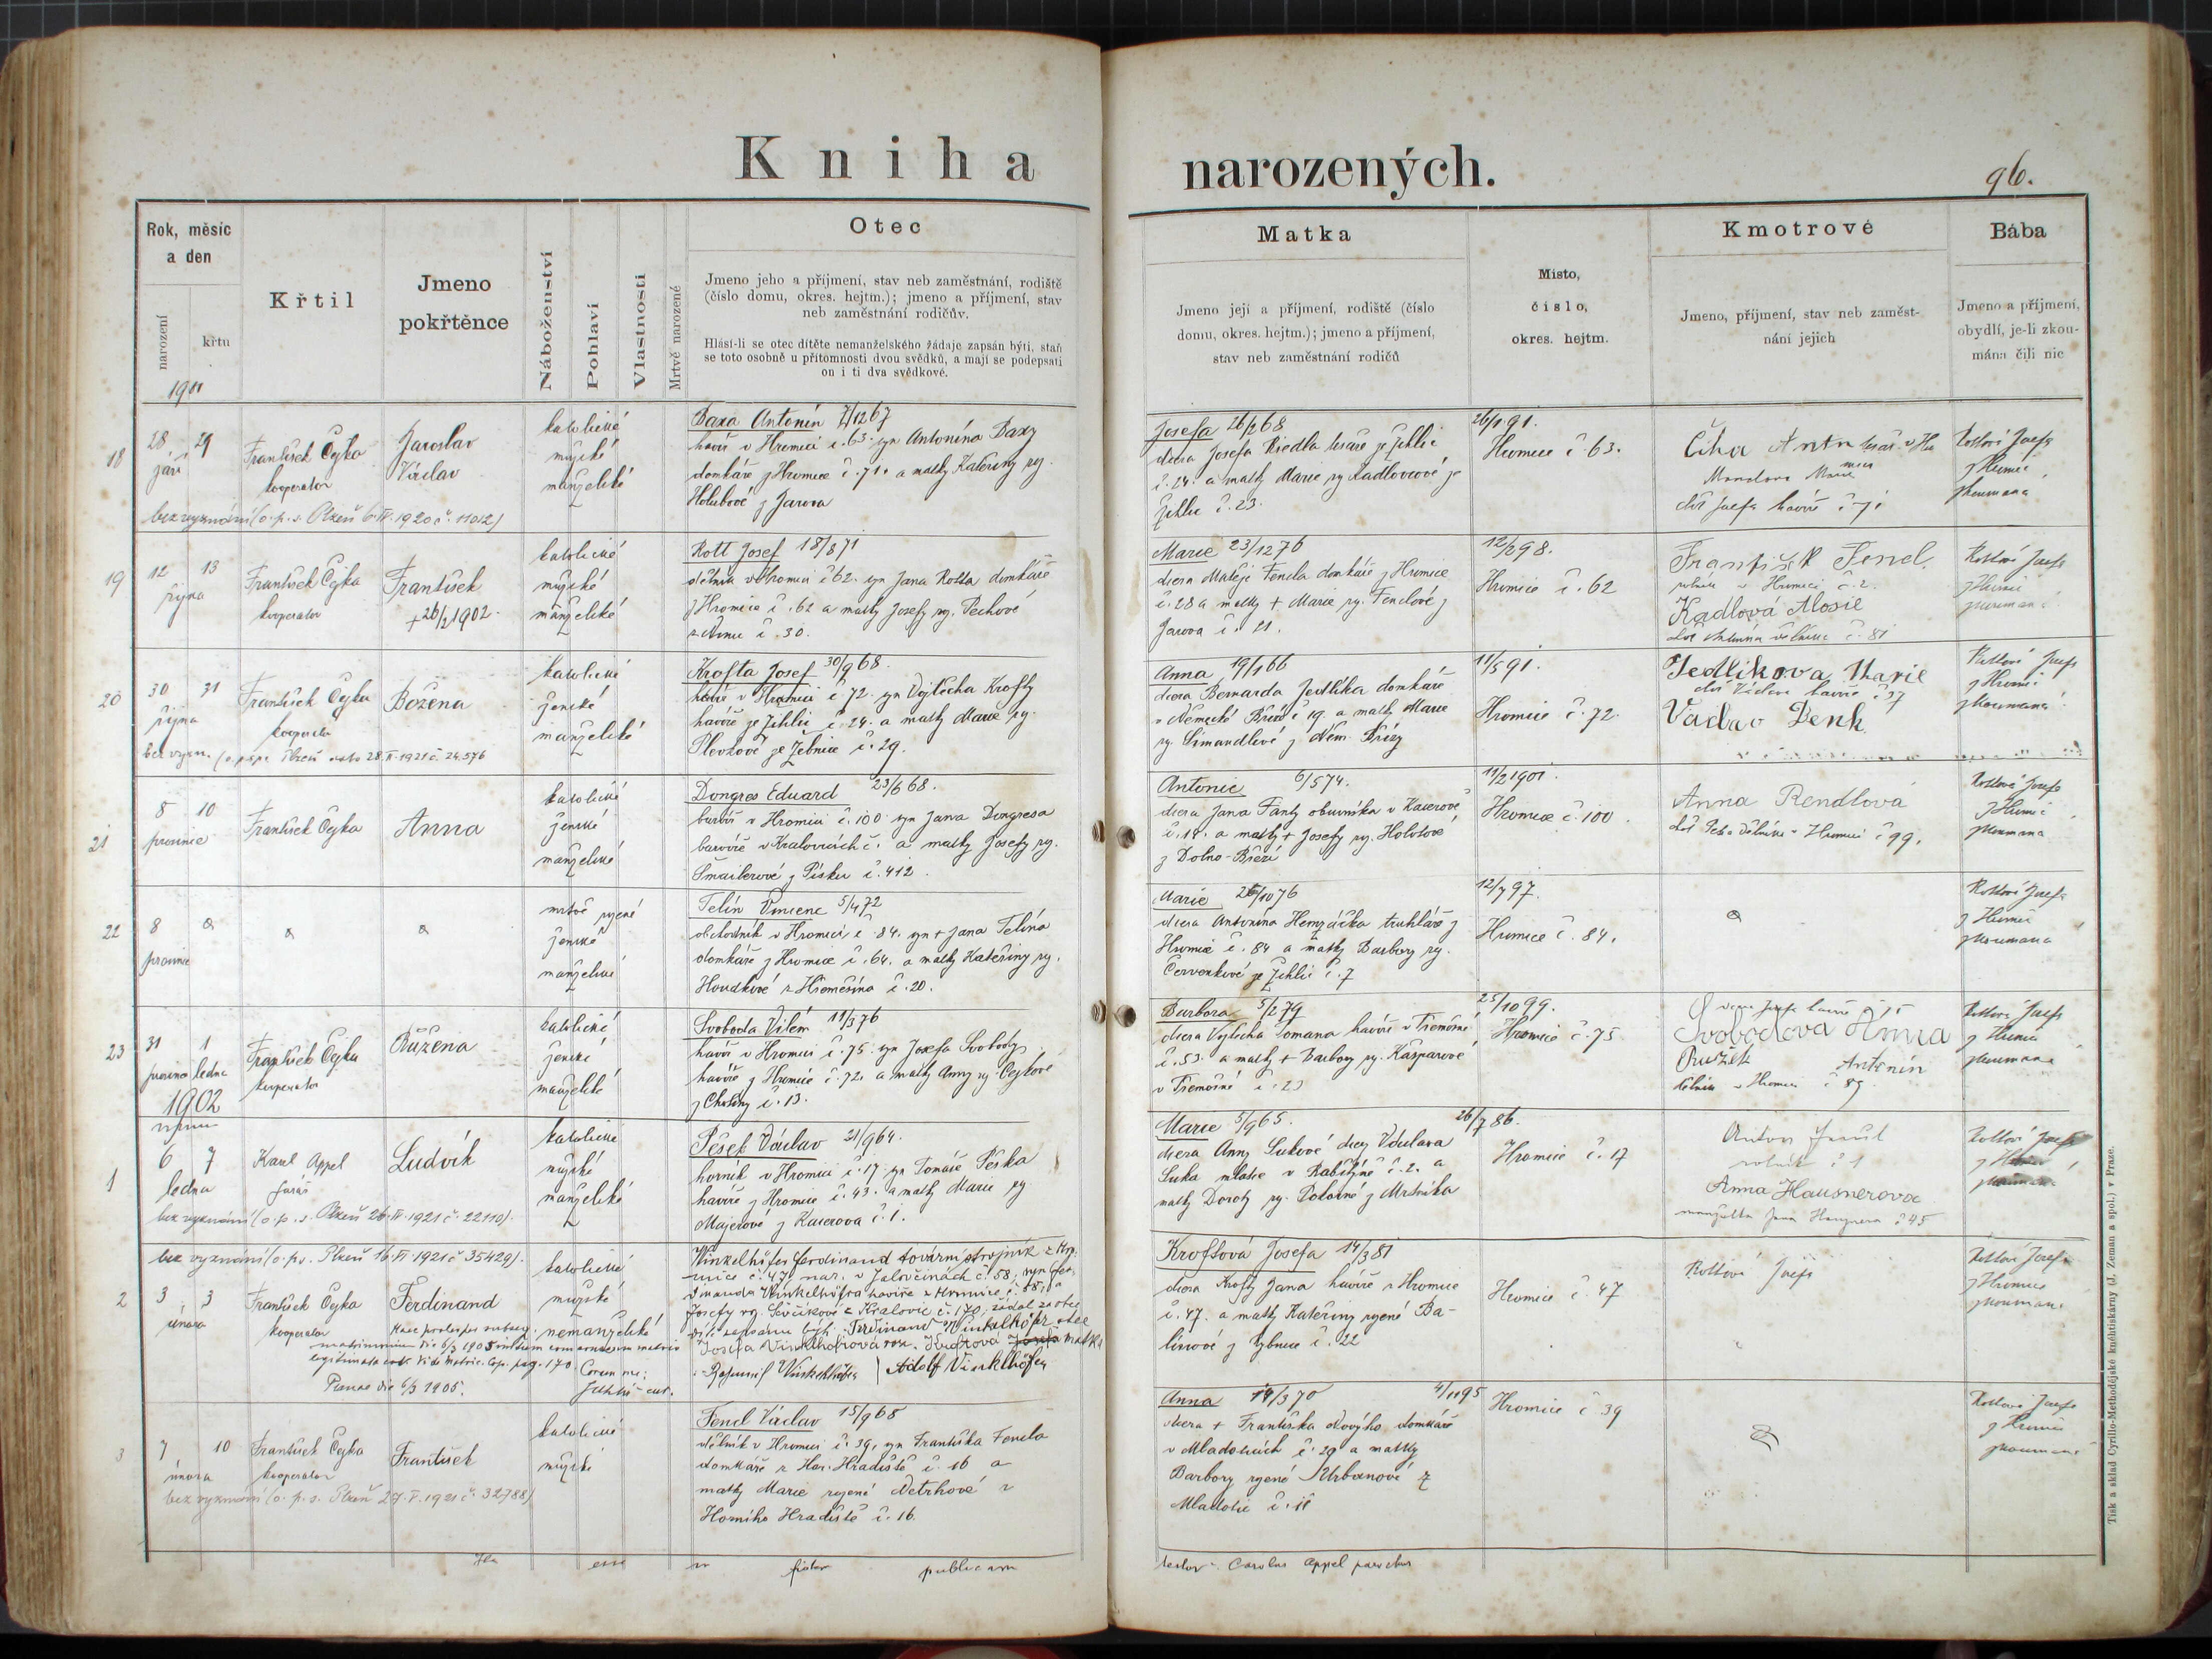 Kniha narozených.
96.
Rok, měsíc a den
narození
křtu
1901
Křtil
Jmeno pokřtěnce
Náboženství
Pohlaví
Vlastnosti
Mrtvě narozené
Otec
Jmeno jeho a příjmení, stav neb zaměstnání, rodiště
(číslo domu, okres. hejtm.); jmeno a příjmení, stav
neb zaměstnání rodičův.
Hlásí-li se otec dítěte nemanželského žádaje zapsán býti, staň
se toto osobně u přítomnosti dvou svědků, a mají se podepsati
on i ti dva svědkové.
Matka
Jmeno její a příjmení, rodiště (číslo
domu, okres. hejtm.); jmeno a příjmení,
stav neb zaměstnání rodičů
Místo,
číslo,
okres. hejtm.
Kmotrové
Jmeno, příjmení, stav neb zaměst-
nání jejich
Bába
Jmeno a příjmení,
obydlí, je-li zkou-
mána čili nic
18
28 29
září
František Čejka
kooperator
Jaroslav
Václav
katolické
mužské
manželské
bez vyznání (o. p. s. Plzeň 6.IV.1920 č. 11012)
Baxa Antonín 7/12 67
havíř v Hromici č. 63. syn Antonína Baxy
domkáře z Hromice č. 71. a matky Kateřiny roz.
Holubové z Jarova
Josefa 26/2 68
dcera Josefa Riedla tesaře ze Žihlic
č. 24. a matky Marie roz. Kadlecové ze
Žihlic č. 23.
26/1 91.
Hromice č. 63.
Číha Antn
Rottová Josefa
z Hromic
zkoumaná
19
12 13
října
František Čejka
kooperator
František
+ 26/2 1902.
katolické
mužské
manželské
Rott Josef 18/8 71
dělník v Hromici č. 62. syn Jana Rotta domkáře
z Hromice č. 62 a matky Josefy roz. Pechové
č. 30.
Marie 23/12 76
dcera Matěje Fencla domkáře z Hromice
č. 28 a matky + Marie roz. Fenclové z
Jarova č. 21.
12/2 98.
Hromice č. 62
František Fencl
v Hromici č. 2.
Kadlová Aloisie
č. 81
Rottová Josefa
z Hromic
zkoumaná
20
30 31
října
František Čejka
kooperator
Božena
katolické
ženské
manželské
bez vyzn. (o. p. s. Plzeň 28.II.1921 č. 24.576
Krofta Josef 30/9 68.
havíř v Hromici č. 72. syn Vojtěcha Krofty
havíře ze Žihlic č. 24. a matky Marie roz.
ze Žebnice č. 29.
Anna 19/1 66
dcera Bernarda Jedličky domkáře
v Německé Bříze č. 19. a matky Marie
roz. Šimandlové z Něm. Břízy
11/5 91.
Hromice č. 72.
Jedličkova Marie
č. 37
Václav Denk
Rottová Josefa
z Hromic
zkoumaná
21
8 10
prosince
František Čejka
Anna
katolické
ženské
manželské
Dongres Eduard 23/6 68.
v Hromici č. 100. syn Jana Dongresa
v Kralovicích č. a matky Josefy roz.
Šmailerové z Písku č. 412.
Antonie 6/5 74.
dcera Jana Fanty obuvníka v Kacerově
č. 14. a matky + Josefy roz. Holotové
z Dolno-Březí
11/2 1901.
Hromice č. 100.
Anna Rendlová
Hromici č. 99.
Rottová Josefa
z Hromic
zkoumaná
22
8
prosince
mrtvě rozené
ženské
manželské
Telín Vincenc 5/4 72
obchodník v Hromici č. 84. syn + Jana Telína
domkáře z Hromice č. 64. a matky Kateřiny roz.
Houdkové č. 20.
Marie 26/10 76
dcera Antonína Hemzáčka truhláře z
Hromice č. 84 a matky Barbory roz.
Červenkové ze Žihlic č. 7
12/7 97.
Hromice č. 84.
Rottová Josefa
z Hromic
zkoumaná
23
31 1
prosince ledna
1902
František Čejka
kooperator
Růžena
katolické
ženské
manželské
Svoboda Vilém 11/3 76
havíř v Hromici č. 75. syn Josefa Svobody
havíře z Hromice č. 72. a matky Anny roz. Čejkové
z č. 13.
Barbora 5/2 79
dcera Vojtěcha Tomana havíře v Třemošné
č. 53. a matky + Barbory roz. Kašparové
v Třemošné č. 23
25/10 99.
Hromice č. 75
Svobodova Anna
Ružek Antonín
dělník v Hromici č. 89.
Rottová Josefa
z Hromic
zkoumaná
1
6 7
ledna
Karel Appel
farář
Ludvík
katolické
mužské
manželské
bez vyznání (o. p. s. Plzeň 26.IV.1921 č. 22110).
Pešek Václav 21/9 64.
horník v Hromici č. 17. syn Tomáše Peška
havíře z Hromice č. 43. a matky Marie roz.
Majerové z Kacerova č. 1.
Marie 5/9 65.
dcera Anny Sukové dcery Václava
Suka mlatce v Rabštýně č. 2. a
matky Doroty roz. Pokorné z
26/7 86.
Hromice č. 17
Anton
rolník č. 1
Anna Hausnerova
manželka Jana Hausnera č. 45
Rottová Josefa
2
bez vyznání (o. p. s. Plzeň 16.VI.1921 č. 35429).
3 3
února
František Čejka
kooperator
Ferdinand
katolické
mužské
nemanželské
Haec proles per subseq.
matrimonium die 6/2 1905
legitimata est. Vide Matric. Cop. pag. 170.
Coram me:
Winkelhöfer Ferdinand tovární strojník z Hro-
mice č. 47, nar. v č. 58, syn Fer-
dinanda Winkelhöfra havíře z Hromice č. 58, a
Josefy roz. Ševčíkové z Kralovic č. 170, žádal za otce
zapsánu býti. Ferdinand Winkelhöfr otec
Josefa Vinklhöfrová roz. Kroftová matka
Bohumil Winkelhöfer Adolf Vinklhöfer
Kroftová Josefa 14/3 81
dcera Krofty Jana havíře z Hromice
č. 47. a matky Kateřiny rozené Ba-
línové z Rybnice č. 22
Hromice č. 47
Rottová Josefa
Rottová Josefa
z Hromice
zkoumaná
3
7 10
února
František Čejka
kooperator
František
katolické
mužské
bez vyznání (o. p. s. Plzeň 27.V.1921 č. 32788)
Fencl Václav 15/9 68
dělník v Hromici č. 39, syn Františka Fencla
domkáře z Hor. Hradiště č. 16 a
matky Marie rozené Netrhové z
Horního Hradiště č. 16.
Anna 14/3 70
dcera + Františka domkáře
v Mladoticích č. 29 a matky
Barbory rozené Urbanové z
Mladotic č. 11
4/11 95
Hromice č. 39
Rottová Josefa
z Hromic
zkoumaná
Ita esse in fidem publicam testor: Carolus Appel parochus
Tisk a sklad Cyrillo-Methodějské knihtiskárny (J. Zeman a spol.) v Praze.